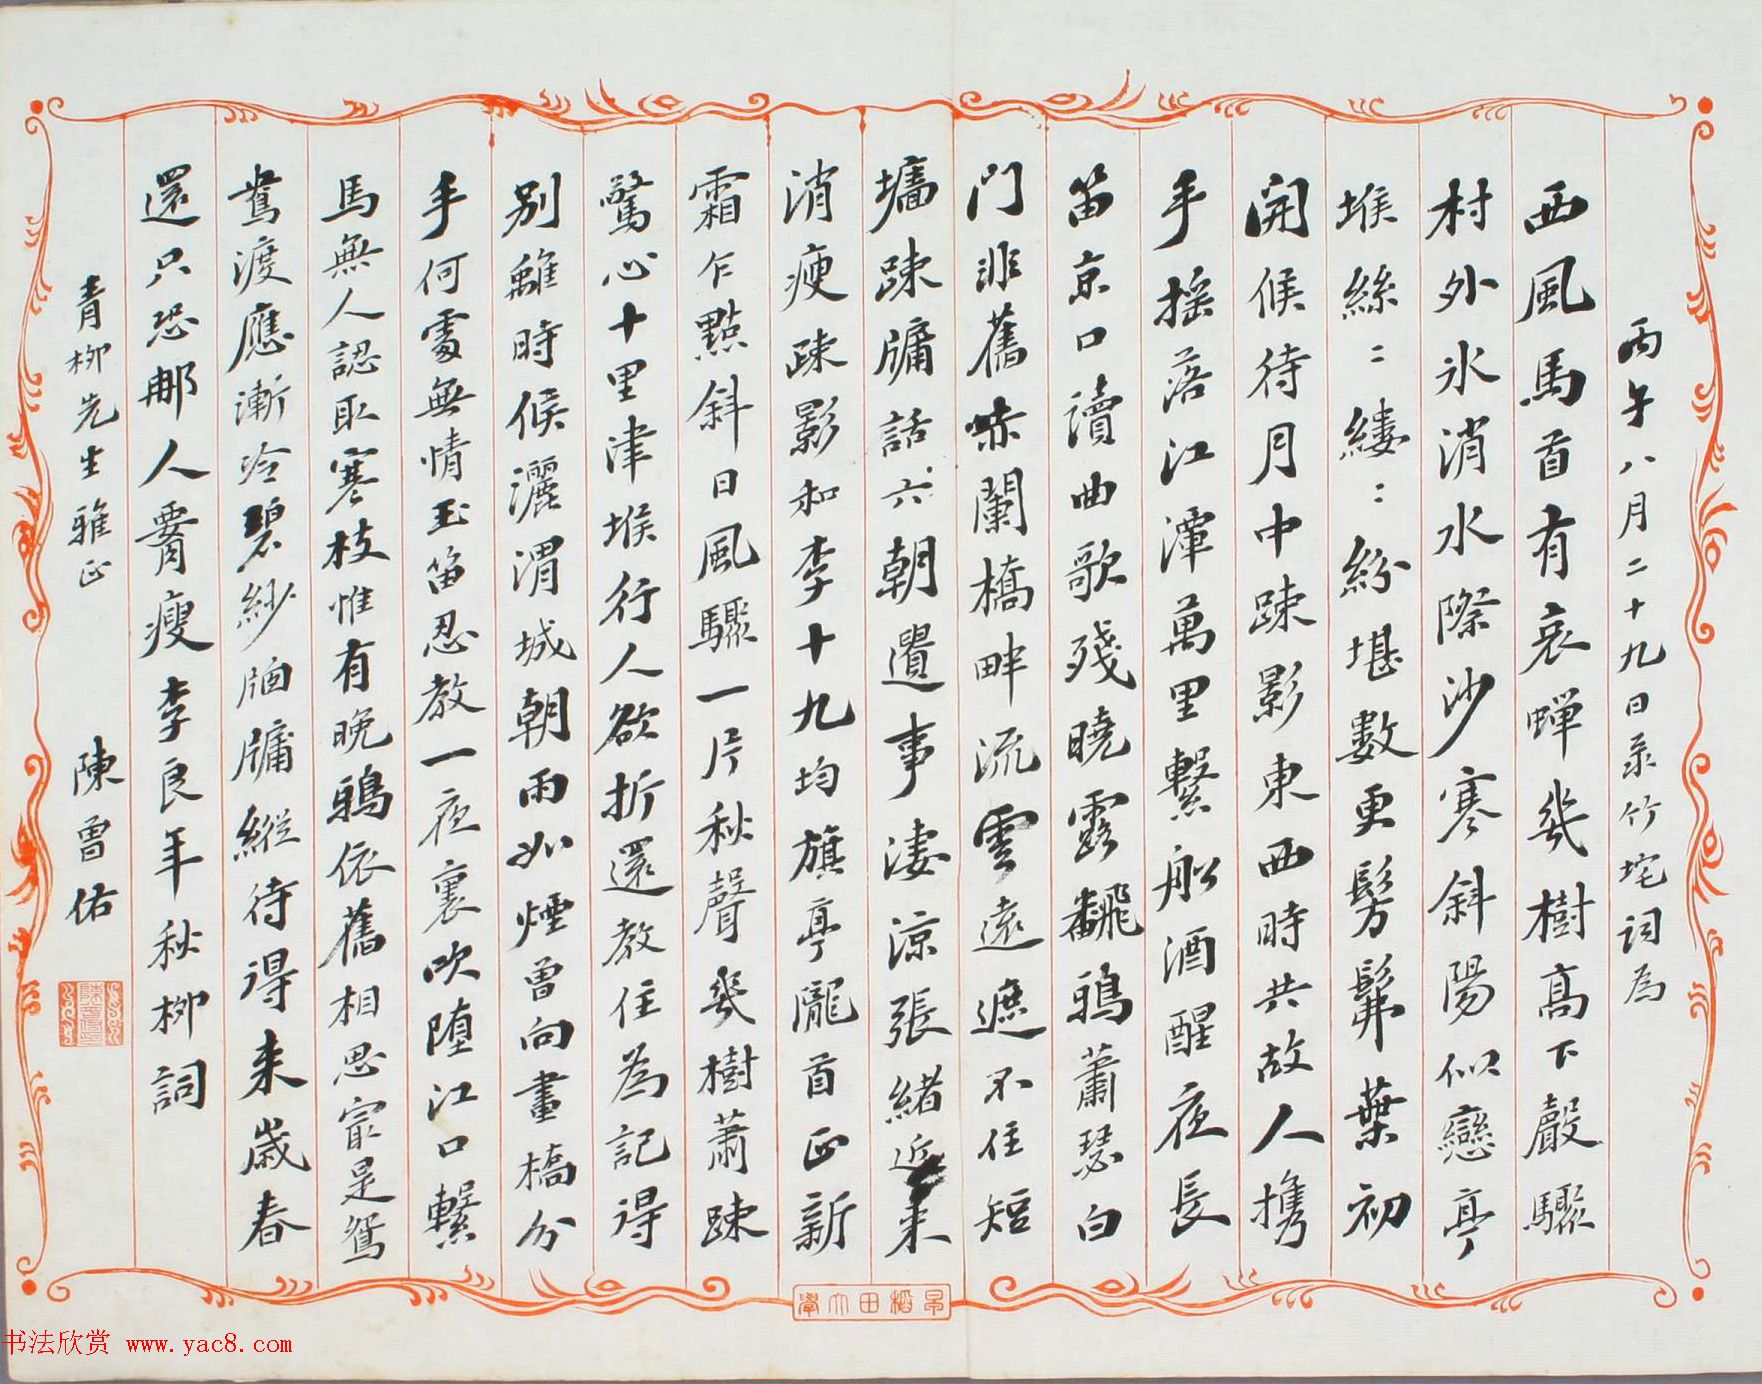 丙午八月二十九日录竹垞詞為
西風馬首有哀蟬幾樹高下聲驟
村外氷消水際沙寒斜陽似戀亭
堠絲〻縷〻紛堪數更髣髴葉初
開候待月中疎影東西時共故人携
手摇落江潭萬里繫船酒醒夜長
笛京口讀曲歌殘曉露飜鴉蕭瑟白
門非舊赤闌橋畔流雲遠遮不住短
墻疎牖話六朝遺事淒涼張緒近来
消瘦疎影和李十九均旗亭隴首正新
霜乍點斜日風驟一片秋聲幾樹蕭疎
驚心十里津堠行人欲折還教住為記得
别離時候灑渭城朝雨如煙曾向畫橋分
手何處無情玉笛忍教一夜裏吹墮江口繫
馬無人認取寒枝惟有晚鴉依舊相思㝡是鴛
鴦渡應漸冷碧紗牕牖縱待得来歲春
還只恐郍人瘦李良年秋柳詞
青柳先生雅正 陳曾佑
早稻田大學
书法欣赏 www.yac8.com